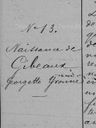 No 13.
Naissance de
Gibeaux
Georgette Yvonne